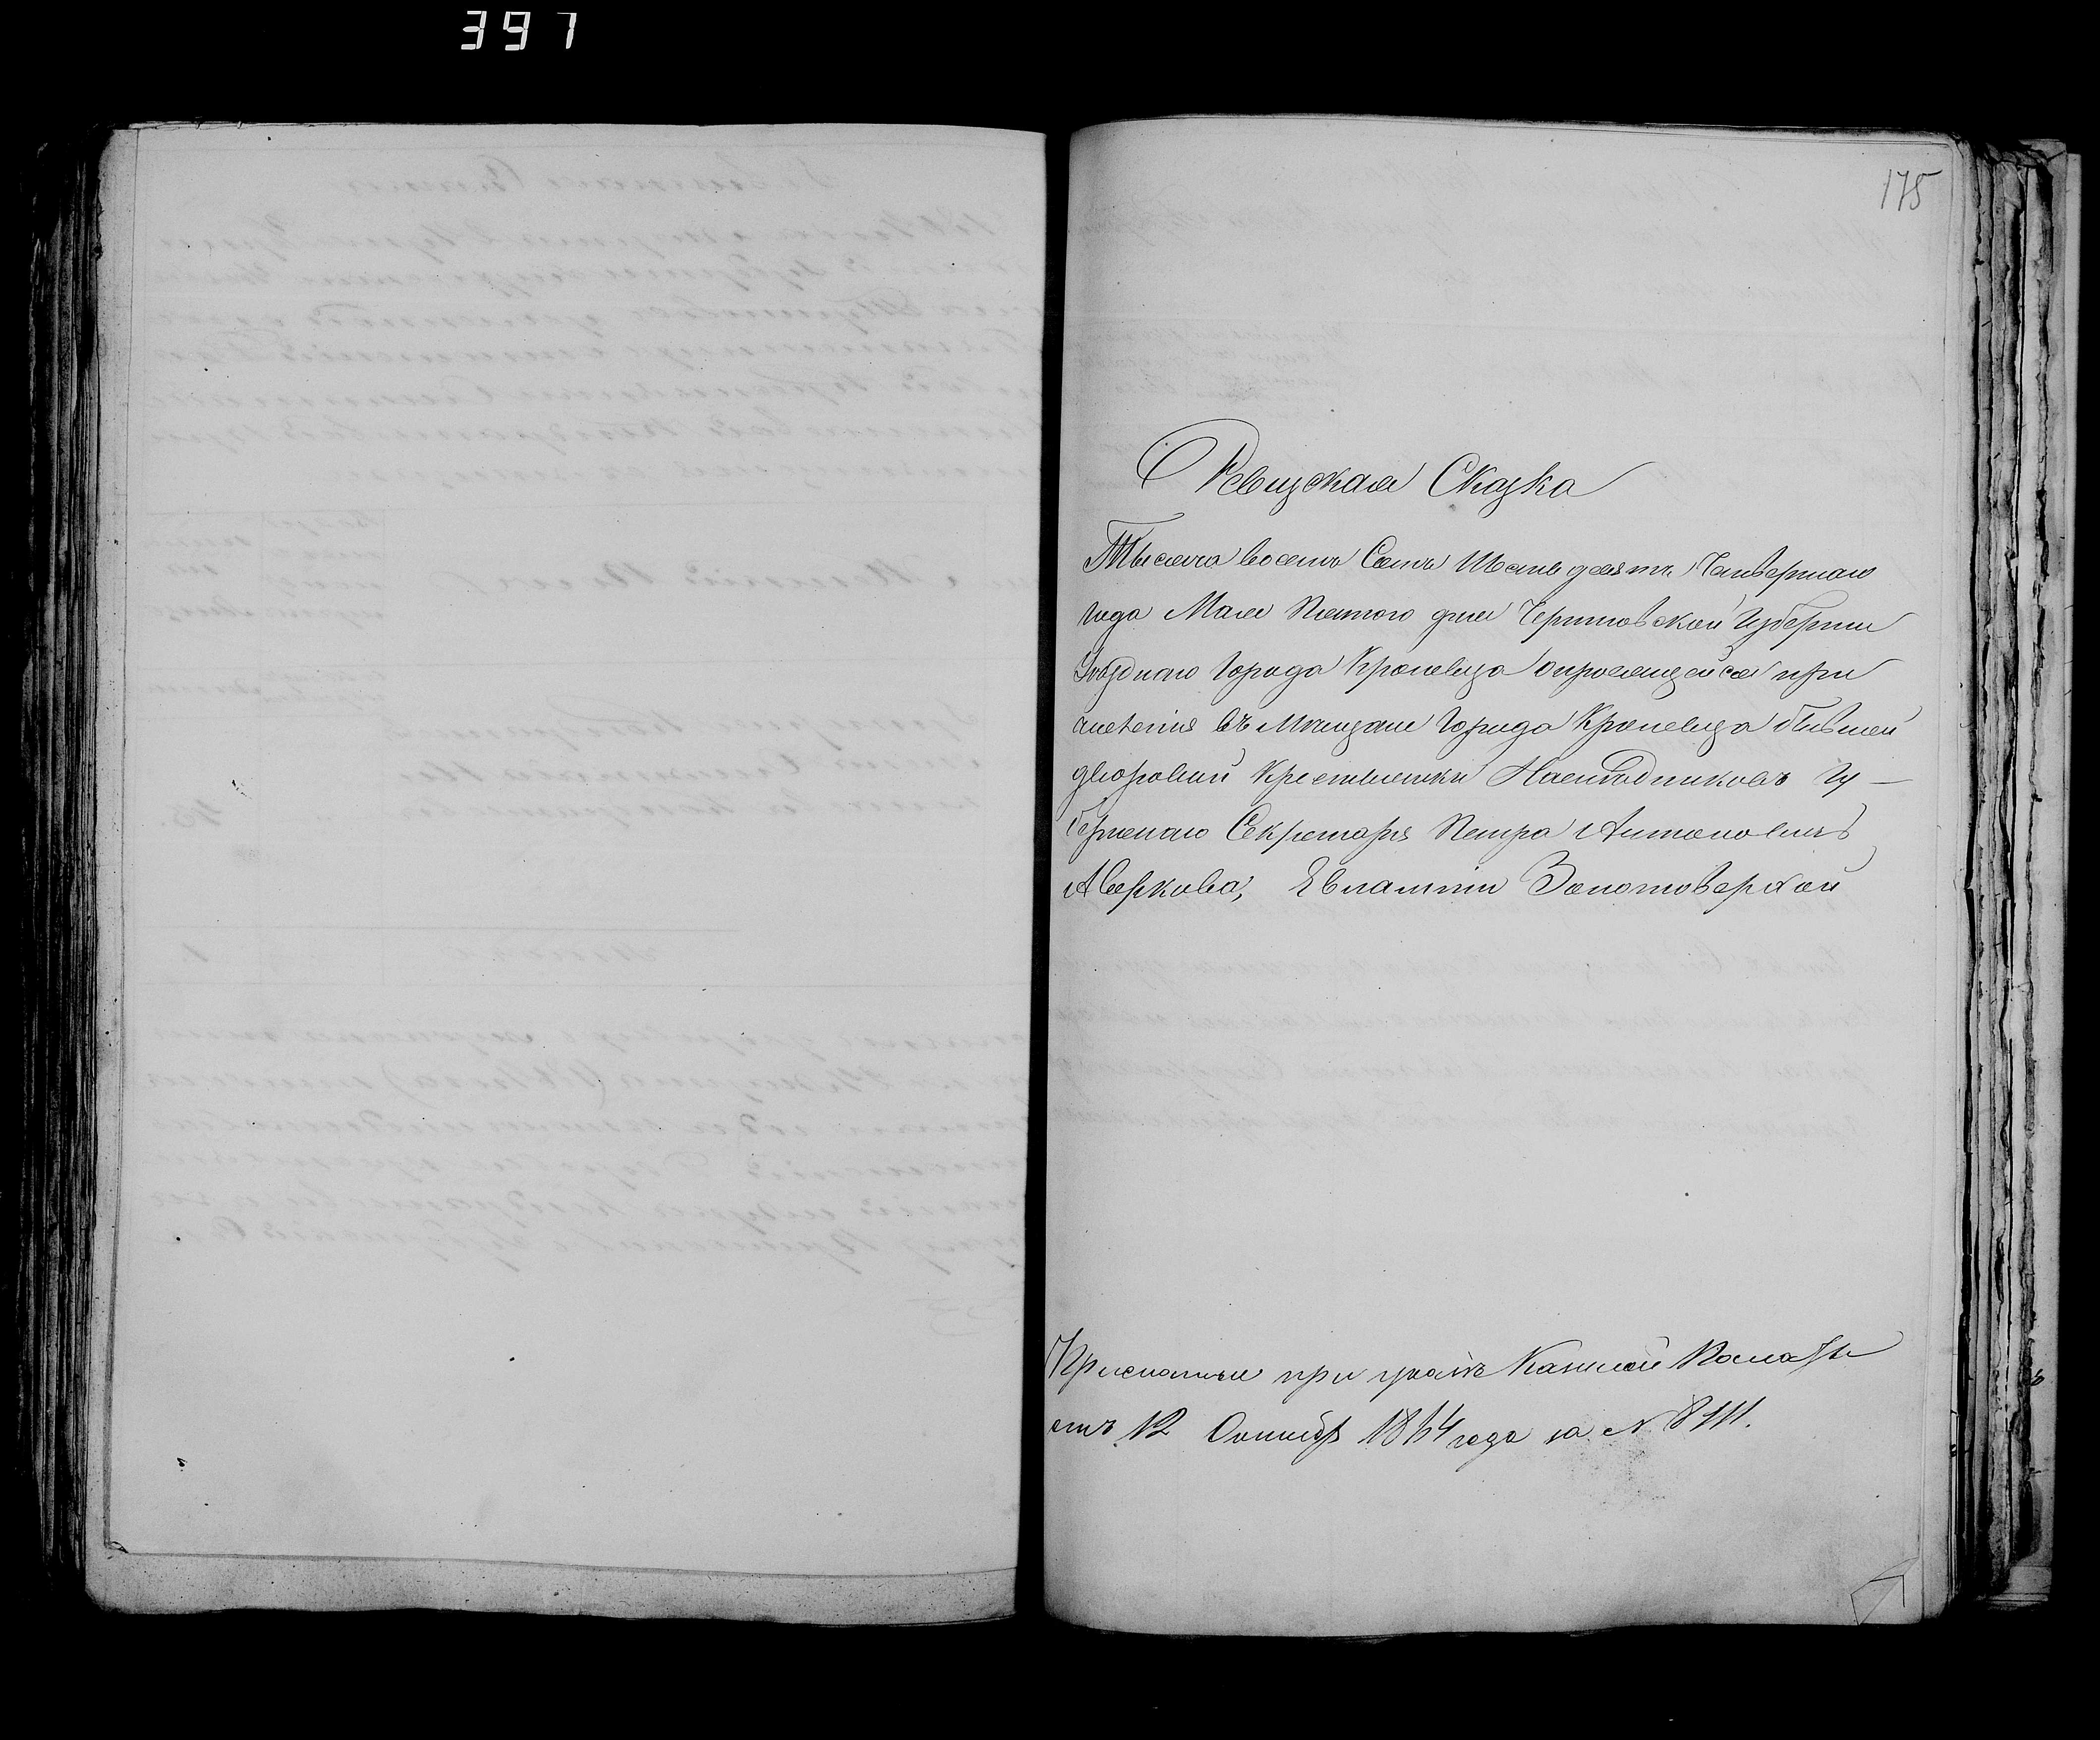 397
175
Ревизская Сказка
Тысяча восемь Сотъ Шестьдесятъ Четвертаго
года Мая Пятого дня Черниговской Губернии
Уѣзднаго Города Кролевца о просящейся при
числения въ Мѣщане Города Кролевца бывшей
дворовой Крестьянки Наслѣдниковъ Гу-
бернскаго Секретаря Петра Антоновича
Аверкова, Евлампіи Золотоверхой
Прислана при указѣ Казенной Палаты
отъ 12 Октября 1864 года за №